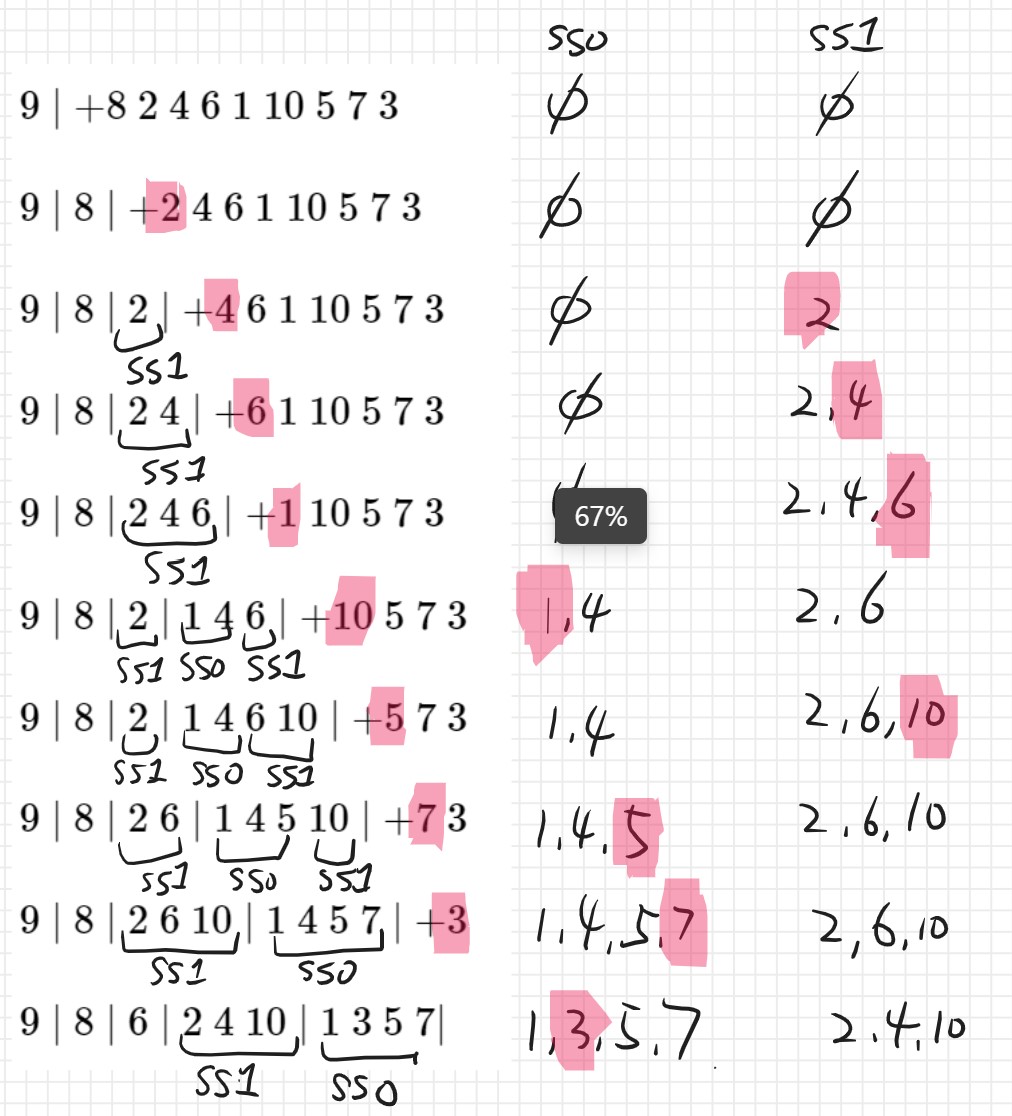 SS0 SS1
9 | +8 2 4 6 1 10 5 7 3 ϕ ϕ
9 | 8 | +2 4 6 1 10 5 7 3 ϕ ϕ
9 | 8 | 2 | +4 6 1 10 5 7 3 ϕ 2
SS1
9 | 8 | 2 4 | +6 1 10 5 7 3 ϕ 2,4
SS1
9 | 8 | 2 4 6 | +1 10 5 7 3 67% 2,4,6
SS1
9 | 8 | 2 | 1 4 6 | +10 5 7 3 1,4 2,6
SS1 SS0 SS1
9 | 8 | 2 | 1 4 6 10 | +5 7 3 1,4 2,6,10
SS1 SS0 SS1
9 | 8 | 2 6 | 1 4 5 10 | +7 3 1,4,5 2,6,10
SS1 SS0 SS1
9 | 8 | 2 6 10 | 1 4 5 7 | +3 1,4,5,7 2,6,10
SS1 SS0
9 | 8 | 6 | 2 4 10 | 1 3 5 7| 1,3,5,7 2,4,10
SS1 SS0